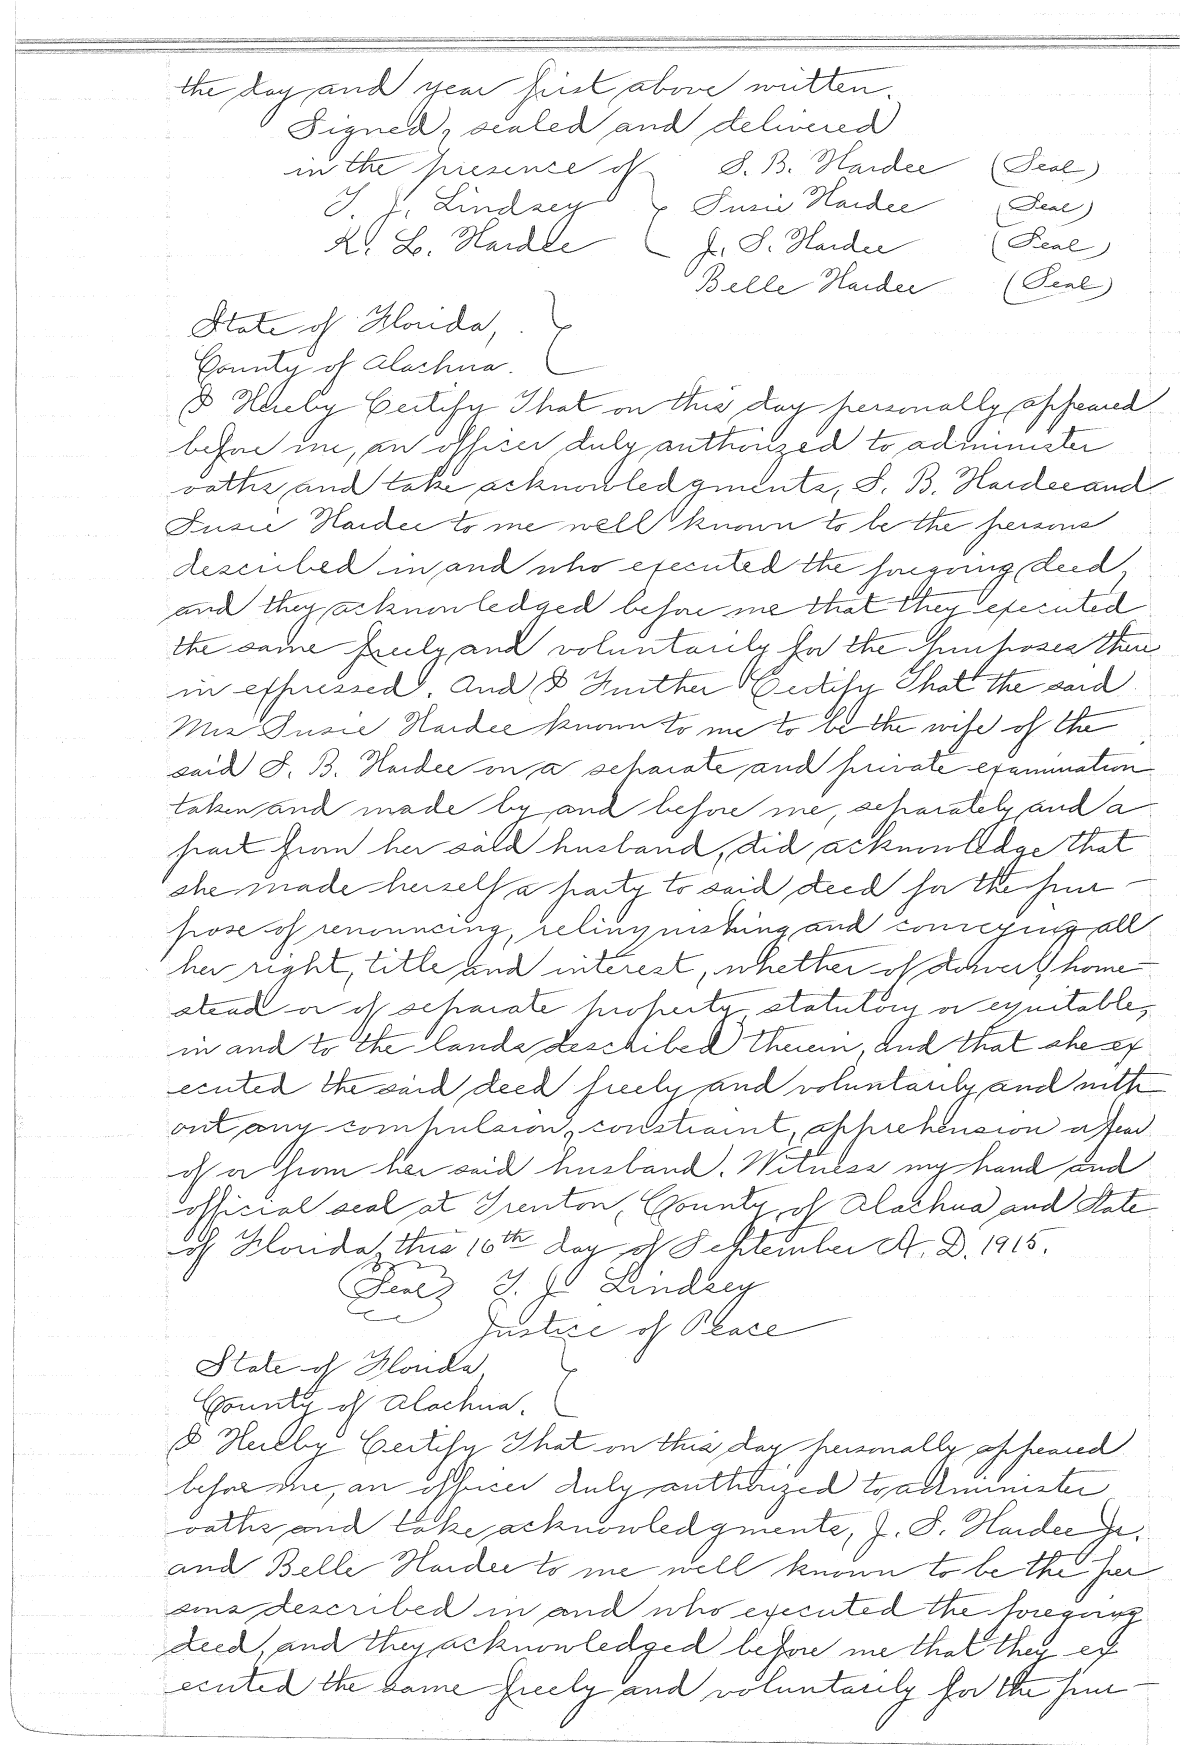 the day and year first above written.
Signed, sealed and delivered
in the presence of S. B. Hardee (Seal)
T. J. Lindsey Susie Hardee (Seal)
K. L. Hardee J. S. Hardee (Seal)
Belle Hardee (Seal)
State of Florida,
County of Alachua.
I Hereby Certify That on this day personally appeared
before me, an officer duly authorized to administer
oaths and take acknowledgments, S. B. Hardee and
Susie Hardee to me well known to be the persons
described in and who executed the foregoing deed,
and they acknowledged before me that they executed
the same freely and voluntarily for the purposes there
in expressed. And I Further Certify That the said
Mrs Susie Hardee known to me to be the wife of the
said S. B. Hardee on a separate and private examination
taken and made by and before me, separately and a
part from her said husband, did acknowledge that
she made herself a party to said deed for the pur-
pose of renouncing, relinquishing and conveying all
her right, title and interest, whether of dower, home-
stead or of separate property, statutory or equitable,
in and to the lands described therein, and that she ex
ecuted the said deed freely and voluntarily and with
out any compulsion, constraint, apprehension or fear
of or from her said husband. Witness my hand and
official seal at Trenton, County of Alachua and State
of Florida, this 16th day of September A. D. 1915.
(Seal) T. J. Lindsey
Justice of Peace
State of Florida,
County of Alachua.
I Hereby Certify That on this day personally appeared
before me, an officer duly authorized to administer
oaths and take acknowledgments, J. S. Hardee Jr.
and Belle Hardee to me well known to be the per
sons described in and who executed the foregoing
deed, and they acknowledged before me that they ex
ecuted the same freely and voluntarily for the pur-